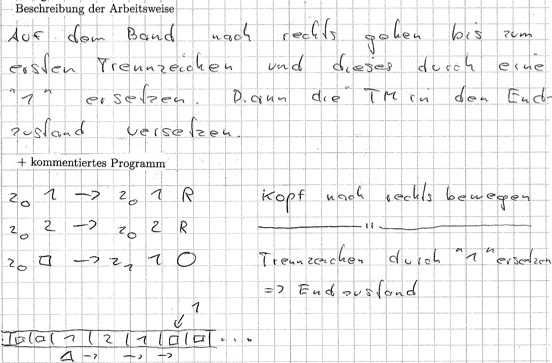 Beschreibung der Arbeitsweise
Auf dem Band nach rechts gehen bis zum
ersten Trennzeichen und dieses durch eine
"1" ersetzen. Dann die TM in den End-
zustand versetzen.
+ kommentiertes Programm
z₀ 1 → z₀ 1 R Kopf nach rechts bewegen
z₀ 2 → z₀ 2 R —— " ——
z₀ □ → z₁ 1 O Trennzeichen durch "1" ersetzen
=> Endzustand
1
|□|□|1|2|1|□|□| ...
△ → → →